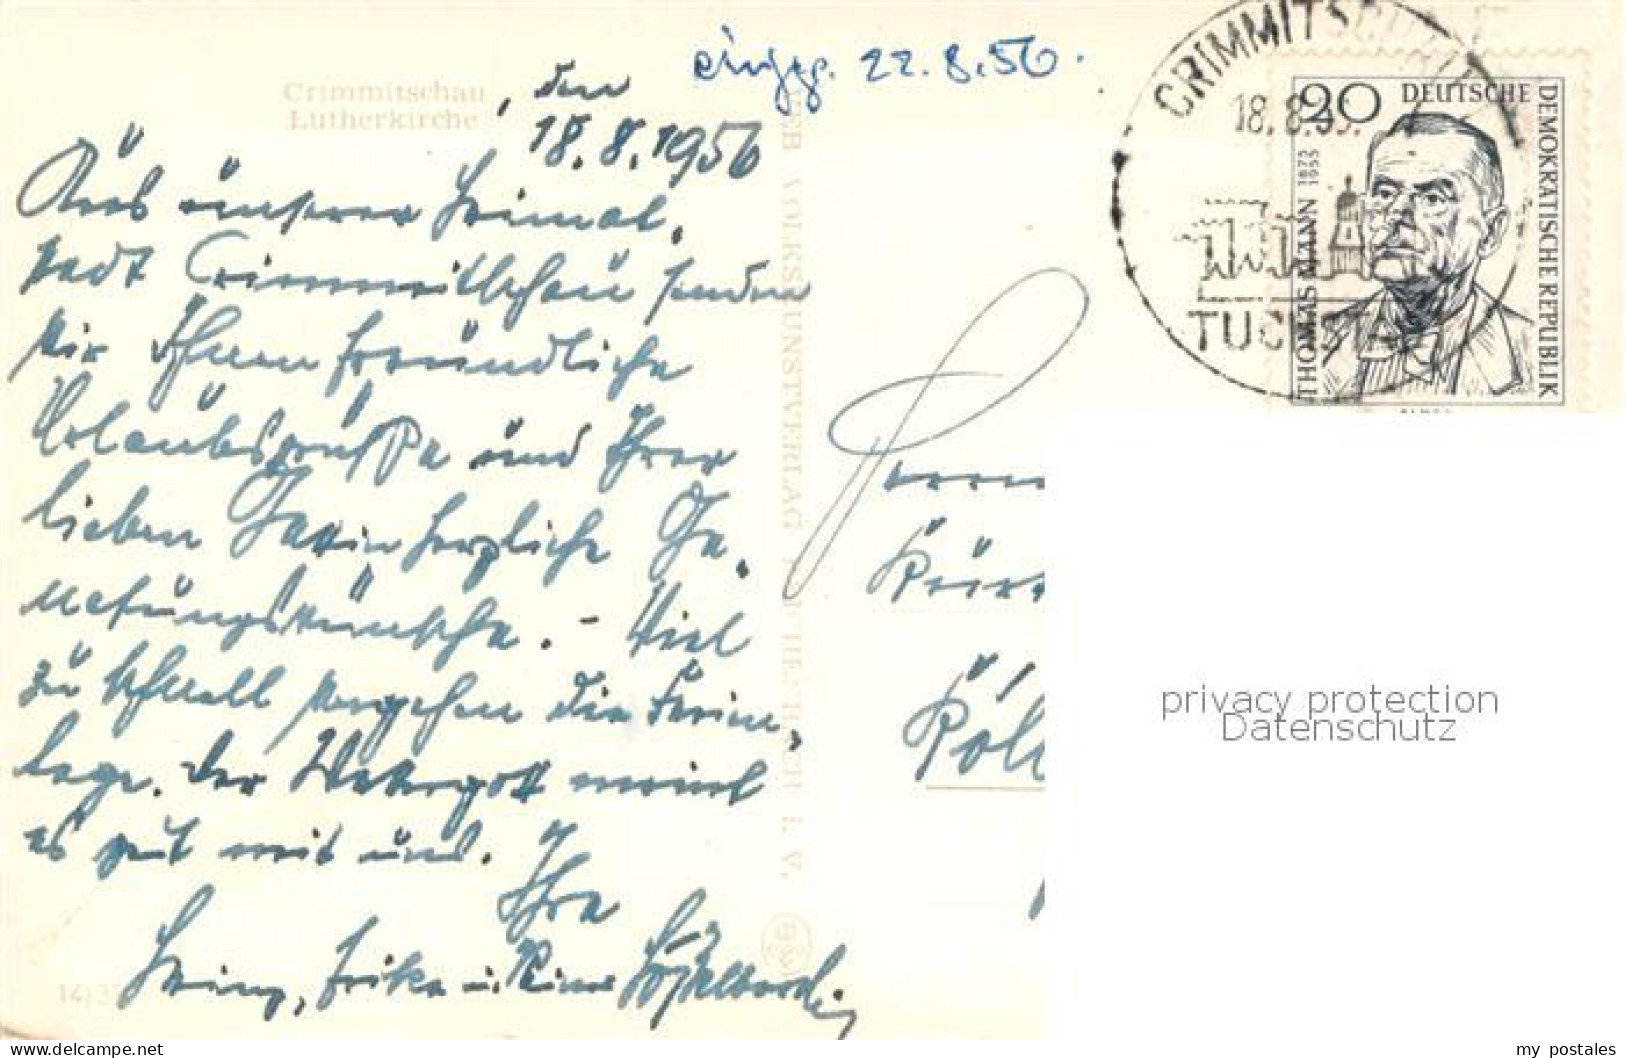 eingeg. 22.8.56.
Crimmitschau
Lutherkirche
, den
18.8.1956
Aus unserer Heimat,
stadt Crimmitschau senden
wir Ihnen freundliche
Urlaubsgrüße und Ihrer
lieben Gattin herzliche Ge,
nesungswünsche. – Viel
zu schnell vergehen die Ferien,
tage. Der Wettergott meint
es gut mit uns.
Ihre
Heinz, Erika u.
14/3
VEB VOLKSKUNSTVERLAG REICHENBACH I. V.
CRIMMITSCHAU
18.8.5
TUCHSTADT
20 DEUTSCHE DEMOKRATISCHE REPUBLIK
THOMAS MANN 1875 1955
Herrn
Kurt
Köl
privacy protection
Datenschutz
www.delcampe.net
my_postales